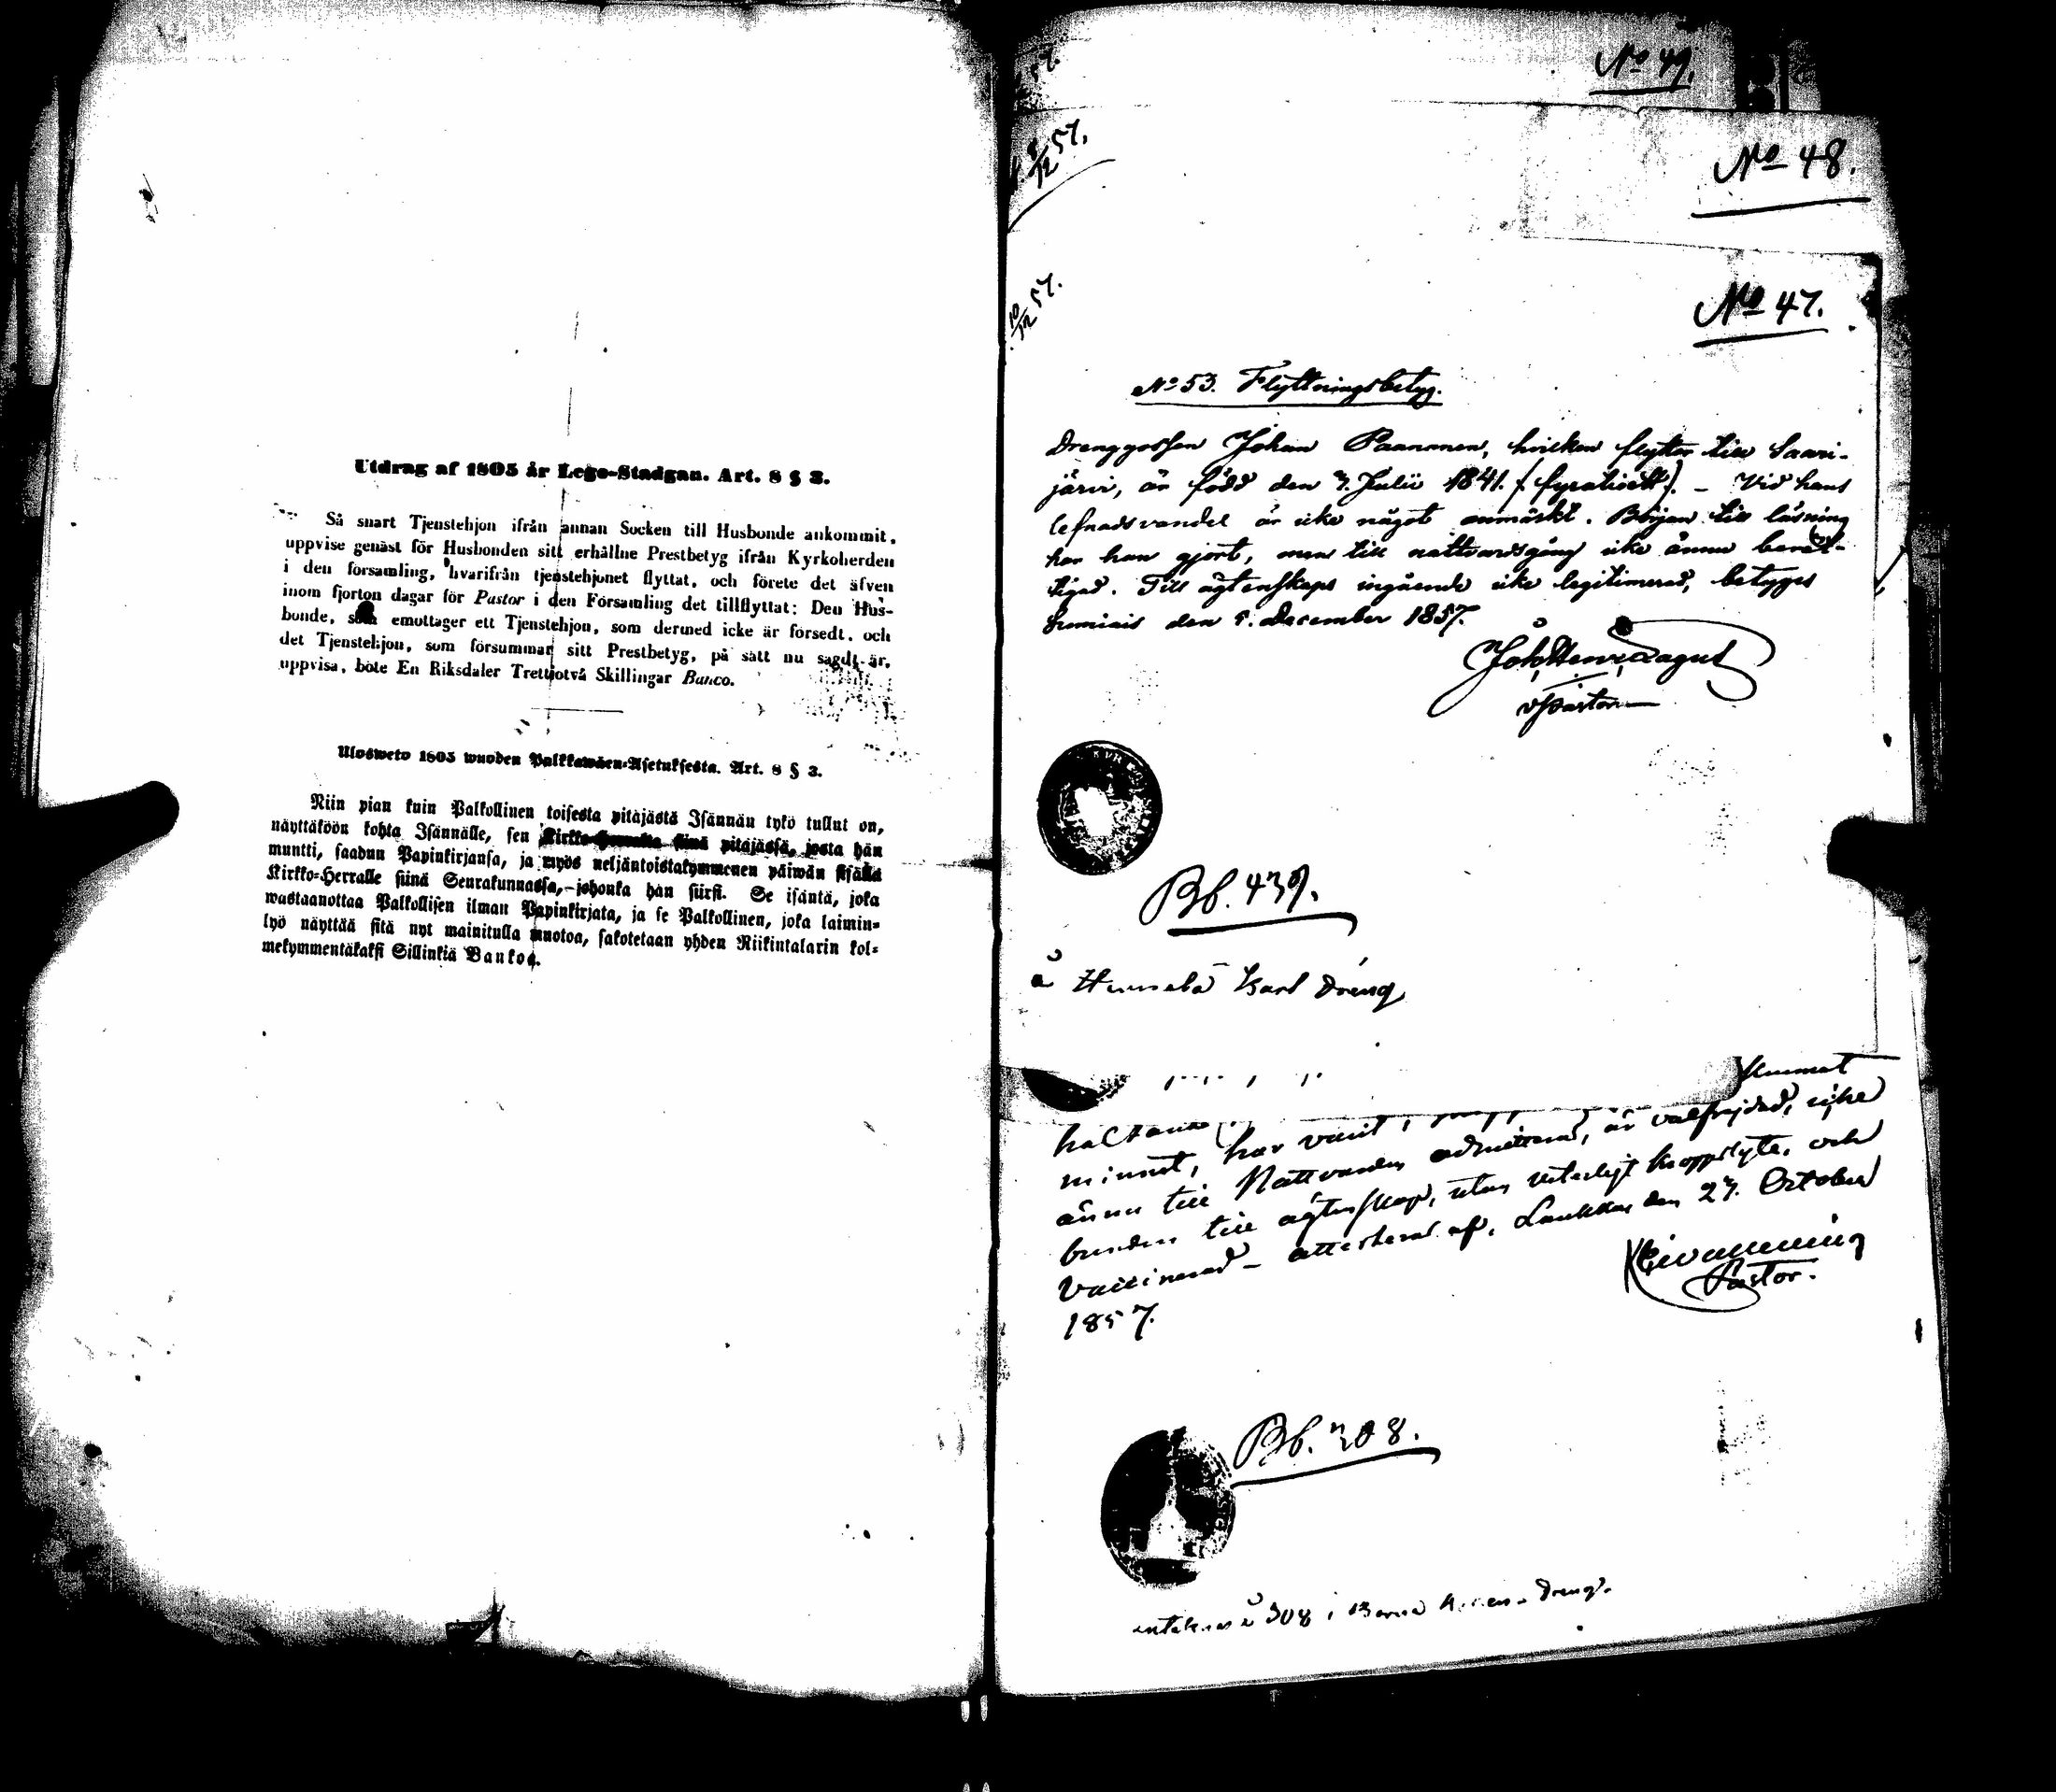 Utdrag af 1805 år Lego-Stadgan. Art. 8 § 3.
Så snart Tjenstehjon ifrån annan Socken till Husbonde ankommit,
uppvise genast för Husbonden sitt erhållne Prestbetyg ifrån Kyrkoherden
i den församling, hvarifrån tjenstehjonet flyttat, och förete det äfven
inom fjorton dagar för Pastor i den Församling det tillflyttat: Den Hus-
bonde, som emottager ett Tjenstehjon, som dermed icke är försedt, och
det Tjenstehjon, som försummar sitt Prestbetyg, på sätt nu sagdt är,
uppvisa, böte En Riksdaler Trettiotvå Skillingar Banco.
Ulosweto 1805 wuoden Palkkawäen-Asetuksesta. Art. 8 § 3.
Niin pian kuin Palkollinen toisesta pitäjästä Isännän tykö tullut on,
näyttäköön kohta Isännälle, sen Kirkko-Herralta siinä pitäjässä, josta hän
muutti, saadun Papinkirjansa, ja myös neljäntoistakymmenen päiwän sisällä
Kirkko-Herralle siinä Seurakunnassa, johonka hän siirsi. Se isäntä, joka
wastaanottaa Palkollisen ilman Papinkirjata, ja se Palkollinen, joka laimin-
lyö näyttää sitä nyt mainitulla muotoa, sakotetaan yhden Riikintalarin kol-
mekymmentäkaksi Sillinkiä Bankoa.
No 49.
8/12 57.
No 48.
10/12 57.
No 47.
No 53. Flyttningsbetyg.
Drenggossen Johan Paananen, hvilken flyttar till Saari-
järvi, är född den 7. Julii 1841. (fyratioett). – Vid hans
lefnadsvandel är icke något anmärkt. Början till läsning
har han gjort, men till nattvardsgång icke ännu berät-
tigad. Till ägtenskaps ingående icke legitimerad, betygas
den 5. December 1857.
Joh. Henr. Lagus
v Pastor
Bb. 439.
å Karl Dreng
minnet, har varit
ännu till Nattvarden admitterad, är välfrejdad, icke
bunden till ägtenskap, utan veterligt kroppslyte, och
Vaccinerad – attesteras af, Laukkas den 27. October
1857.
Pastor.
Bb. 308.
å 308 i Dreng.